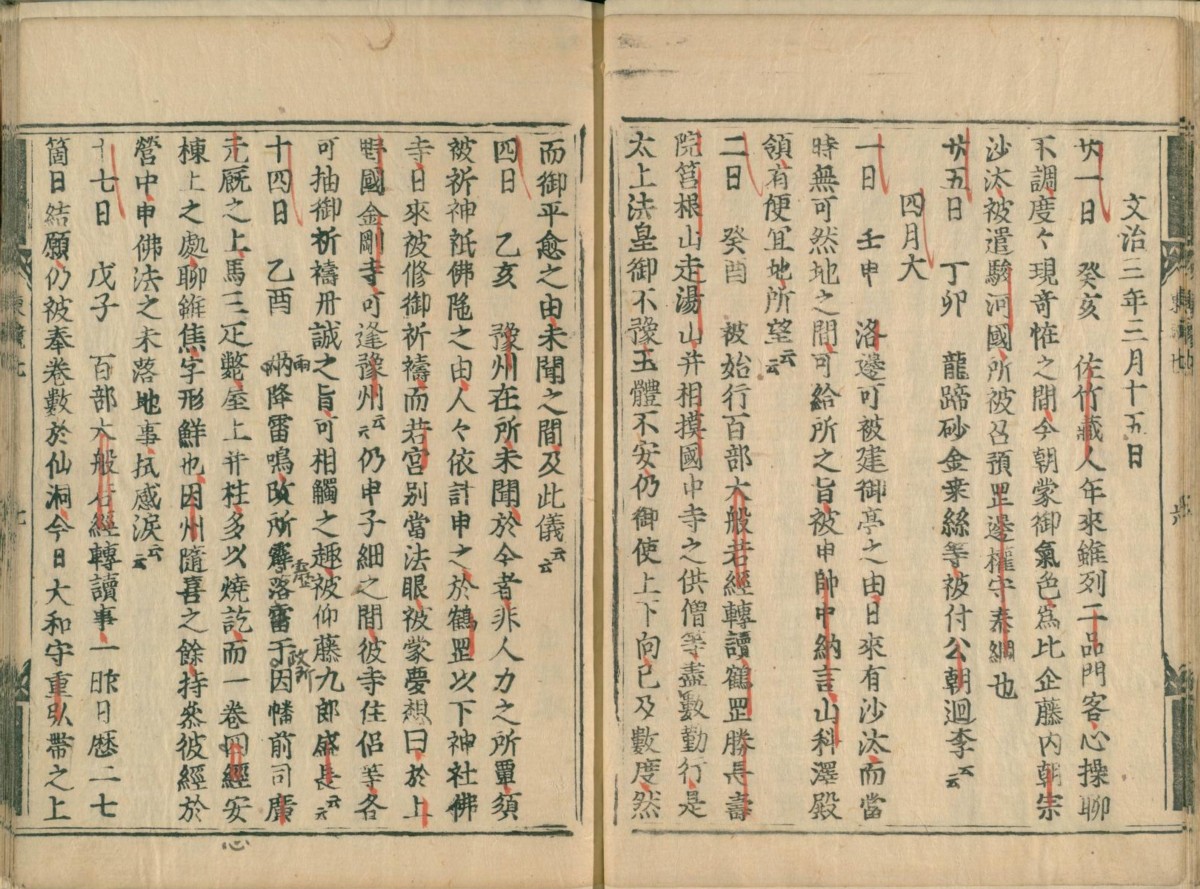 文治三年三月十五日
廿一日 癸亥 佐竹藏人年來雖列二品門客心操聊
不調度々現奇恠之間今朝蒙御氣色爲比企藤内朝宗
沙汰被遣駿河國所被召預罡邊權守泰綱也
廿五日 丁卯 龍蹄砂金桒絲等被付公朝迴李云云
四月大
一日 壬申 洛邊可被建御亭之由日來有沙汰而當
時無可然地之間可給所之旨被申帥中納言山科澤殿
領有便冝地所望云云
二日 癸酉 被始行百部大般若經轉讀鶴罡勝長壽
院筥根山走湯山并相摸國中寺之供僧等盡數勤行是
太上法皇御不豫玉體不安仍御使上下向已及數度然
而御平愈之由未聞之間及此儀云云
四日 乙亥 豫州在所未聞於今者非人力之所覃須
被祈神祇佛陁之由人々依計申之於鶴罡以下神社佛
寺日來被修御祈禱而若宮別當法眼被蒙夢想曰於上
野國金剛寺可逢豫州云云仍申子細之間彼寺住侶等各
可抽御祈禱丹誠之旨可相觸之趣被仰藤九郎盛長云云
十四日 乙酉 雨降雷鳴政所霹落雷于因幡前司廣
元厩之上馬三疋斃屋上并柱多以燒訖而一卷心經安
棟上之處聊雖焦字形鮮也因州隨喜之餘持參彼經於
營中申佛法之未落地事拭感涙云云
十七日 戊子 百部大般若經轉讀事一昨日歴二七
箇日結願仍被奉卷數於仙洞今日大和守重弘帶之上